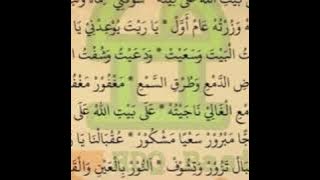 بَيْتَ اللهِ عَلَى
وَزُرْتُهُ عَامْ أَوَّلْ * يَا رَيْتْ يُوْعِدْنِيْ يَا
الْبَيْتَ وَسَعَيْتُ * وَدَعَيْتُ وَشُفْتُ
ضِ الدَّمْعِ وَطُرُقِ السَّمْعِ * مَغْفُوْرْ مَغْفُ
الْغَالِيْ نَاجَيْتُهْ * عَلَى بَيْتِ اللهْ عَلَ
جًّا مَبْرُوْرْ سَعْيًا مَشْكُوْرْ * عُقْبَالْنَا يَا رَ
بَالْ تَزُوْرْ وَتَشُوْفْ * النُّوْرْ بِالْعَيْنِ وَالْقَ